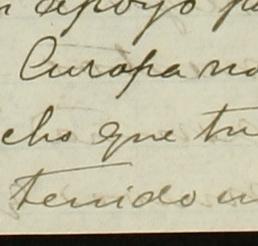 apoyo
Europa no
que tu
tenido